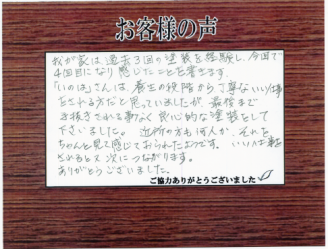 お客様の声
我が家は、過去3回の塗装を経験し、今回で
4回目になり感じたことを書きます。
「いのは」さんは、養生の段階から丁寧ないい仕事
をされる方だと思っていましたが、最後まで
手抜きされる事なく良心的な塗装をして
下さいました。近所の方も何人か、それを
ちゃんと見て感じておられたようです。いい仕事を
されると次につながります。
ありがとうございました。
ご協力ありがとうございました